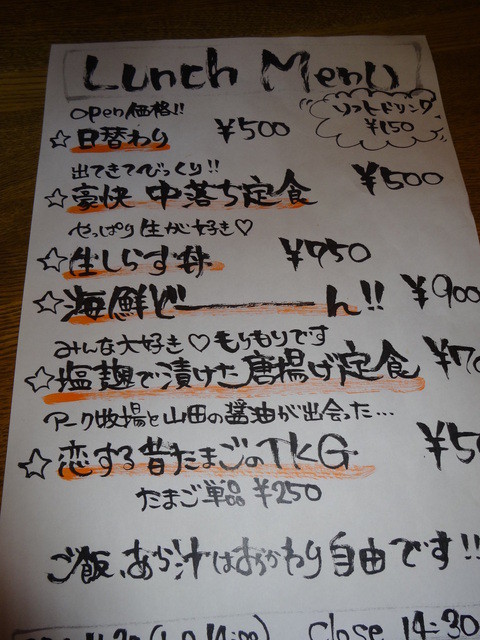 Lunch Menu
open価格!!
ソフトドリンク
¥150
☆日替わり ¥500
出てきてびっくり!!
☆豪快 中落ち定食 ¥500
やっぱり生が好き♡
☆生しらす丼 ¥750
☆海鮮ど――――ん!! ¥900
みんな大好き♡もりもりです
☆塩麹で漬けた唐揚げ定食
アーク牧場と山田の醤油が出会った…
☆恋する昔たまごのTKG
たまご単品 ¥250
ご飯、あら汁はおかわり自由です!!
close 14:30